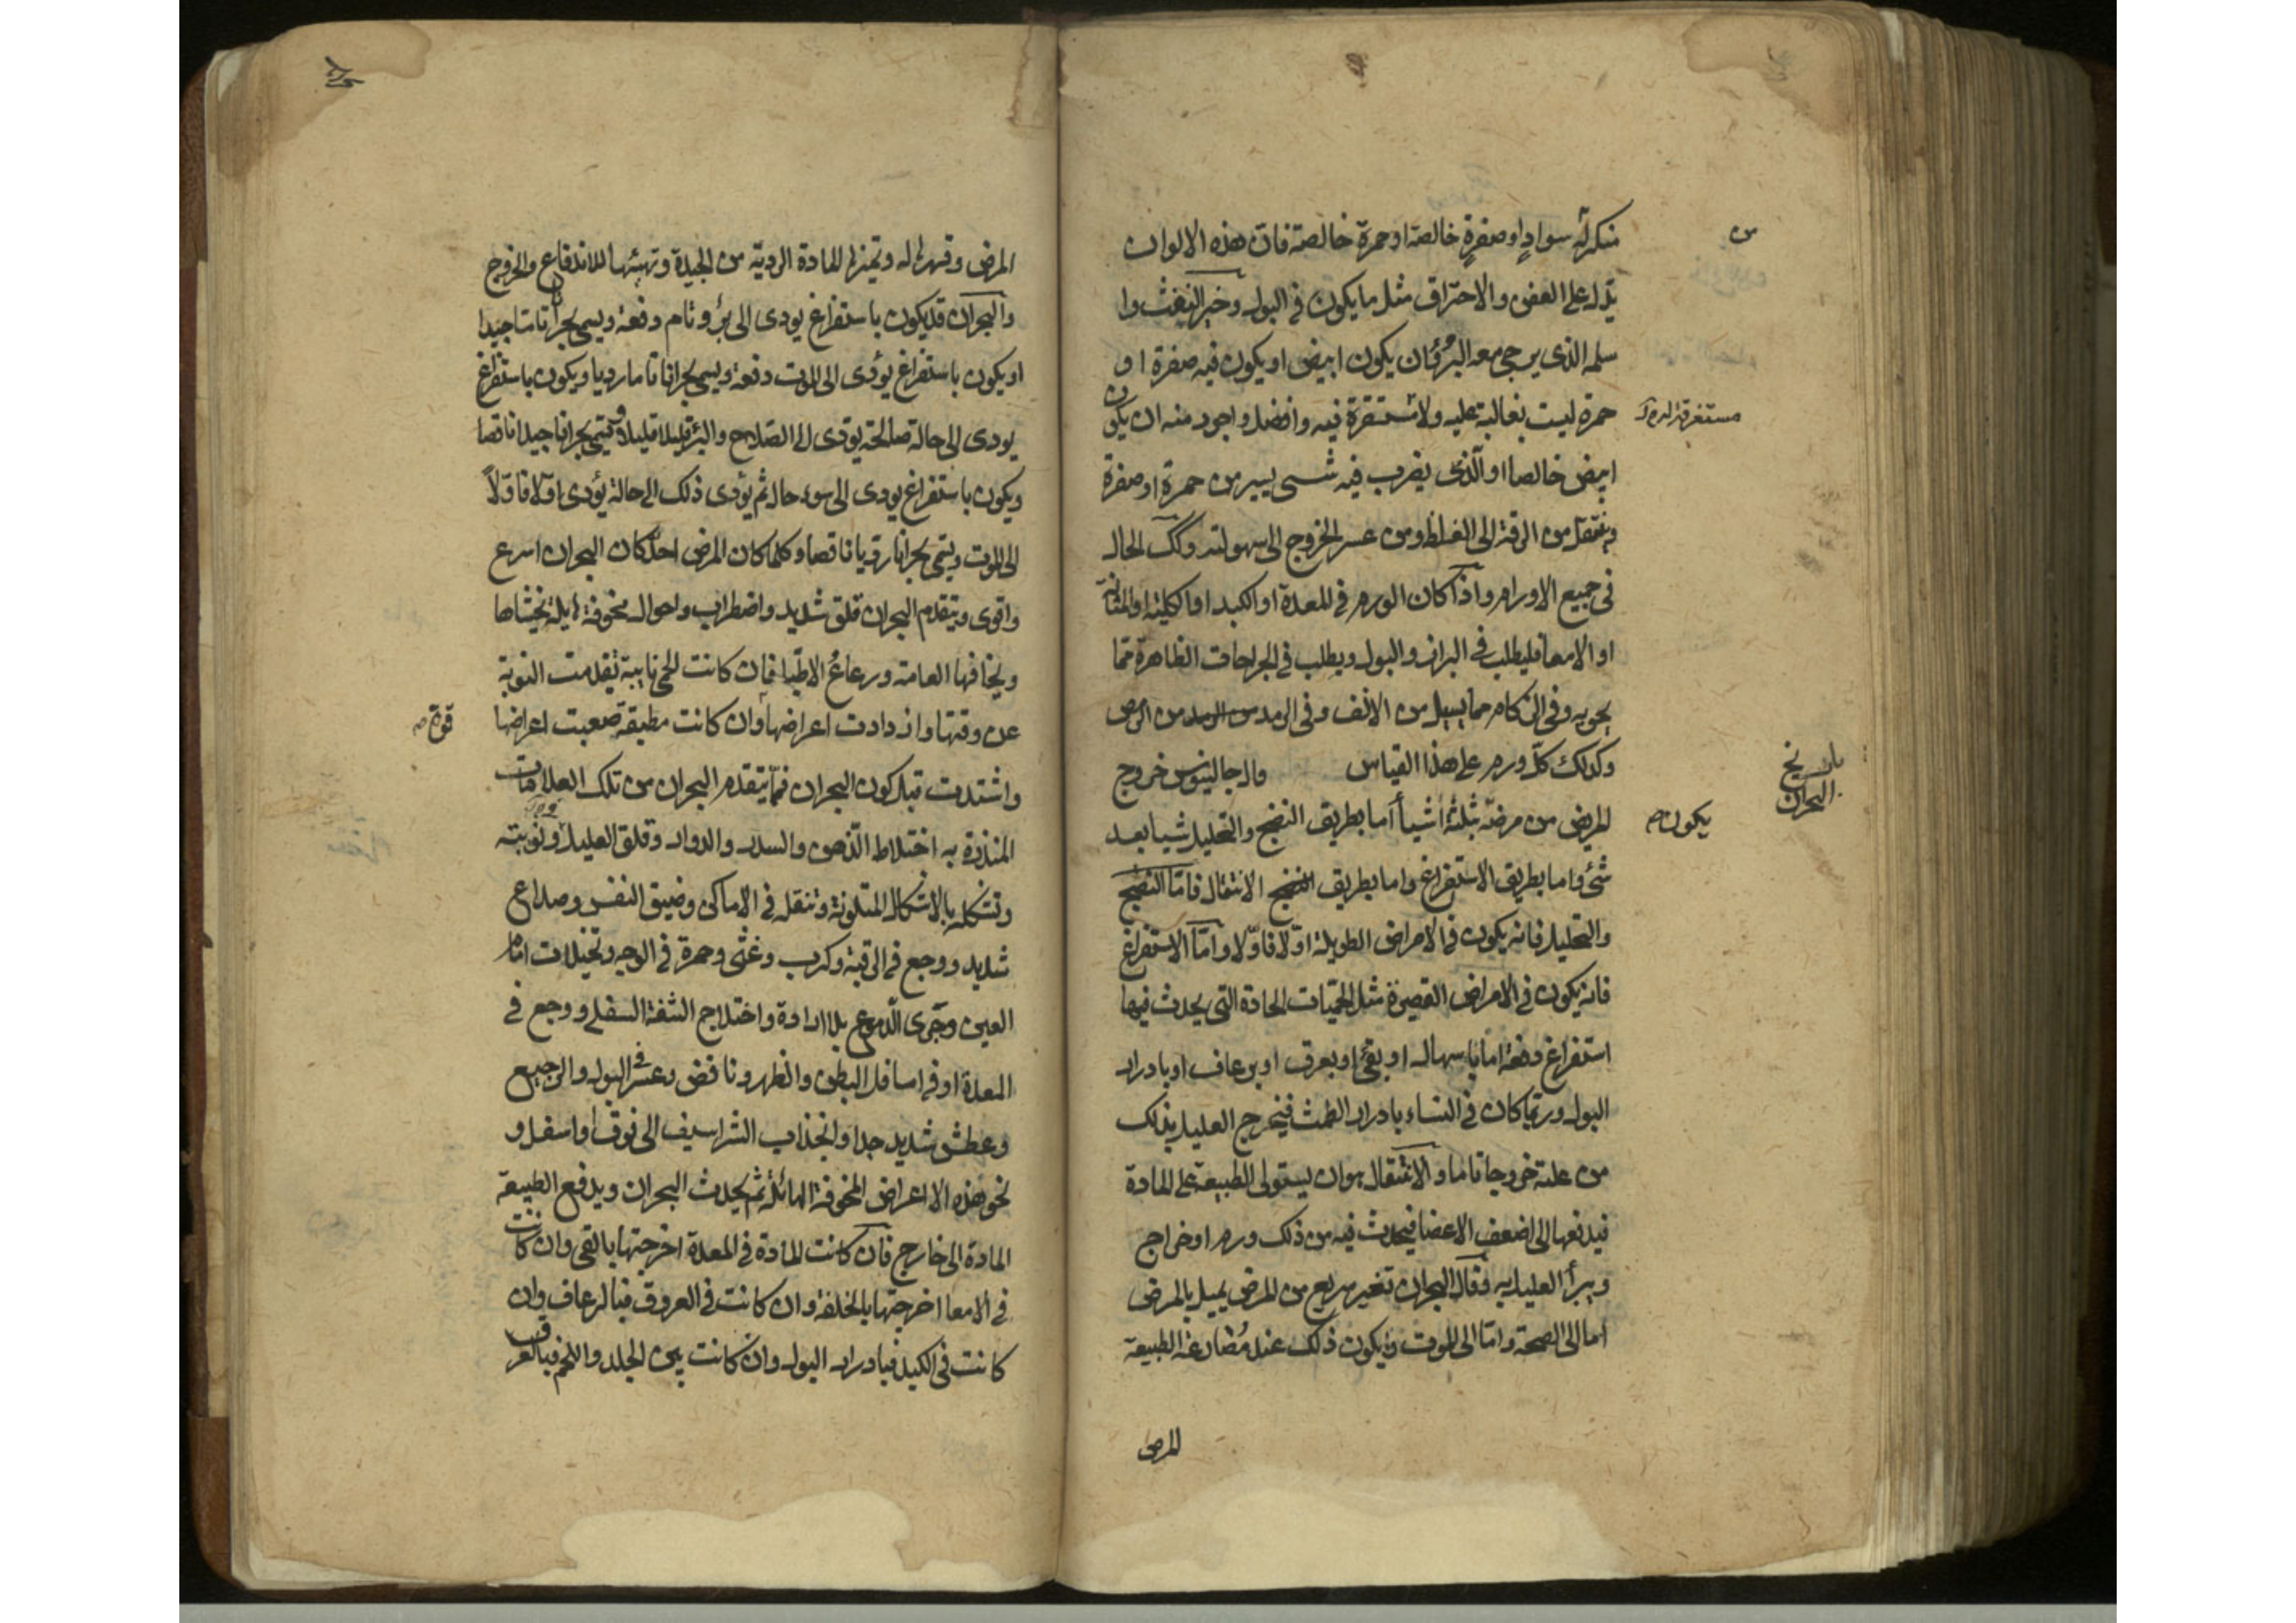 منكرة سوادٍ او صفرةٍ خالصة او حمرة خالصة فان هذه الالوان
يدل على العفن والاحتراق مثل ما يكون في البول وخير النفث وا
سلمه الذي يرجى معه البرؤ فان يكون ابيض او يكون فيه صفرة او
حمرة ليست بغالبة عليه ولا مستقرة فيه وافضل واجود منه ان يكون
مستغرقة
ابيض خالصا او الذي يضرب فيه شيى يسير من حمرة او صفرة
وينتقل من الرقة الى الغلظ ومن عسر الخروج الى سهولته وكك الحال
في جميع الاورام واذا كان الورم في المعدة او الكبد او الكلية او المثانة
او الامعا فليطلب في البراز والبول ويطلب في الجراحات الظاهرة مما
يحويه وفي الزكام مما يسيل من الانف وفي الرمد من الرمص
وكذلك كلّ ورم على هذا القياس قال جالينوس خروج
باب تاريخ
البحران
المريض من مرضه بثلثة اشيأ اما بطريق النضج والتحليل شيا بعد
يكون
شئ واما بطريق الاستفراغ واما بطريق النضج الانتقال فامّا النضج
والتحليل فانه يكون في الامراض الطويلة اوّلا فاوّلا وامّا الاستفراغ
فانه يكون في الامراض القصيرة مثل الحمّيات الحادة التي يحدث فيها
استفراغ دفعة اما باسهال او بقئ او بعرق او برعاف او بادرار
البول وربّما كان في النساء بادرار الطمث فيخرج العليل بذلك
من علته خروجا تاما والانتقال هو ان يستولى الطبيعة على المادة
فيدفعها الى اضعف الاعضا فيحدث فيه من ذلك ورم او خراج
ويبرأ العليل به وقال البحران تغير سريع من المرض يميل بالمرض
اما الى الصحة وامّا الى الموت ويكون ذلك عند مُصارعة الطبيعة
المرض
المرض وقهرها له وتميزها للمادة الردية من الجيدة وتهيئها للاندفاع والخروج
والبحران قد يكون باستفراغ يودى الى برؤ تام دفعة ويسمى بحرانا تاما جيدا
او يكون باستفراغ يؤدى الى الموت دفعة ويسمى بحرانا تاما رديا ويكون باستفراغ
يودى الى حالة صالحة يؤدى الى الصلاح والبرؤ قليلا قليلا ويسمى بحرانا جيدا ناقصا
ويكون باستفراغ يودى الى سوء حال ثم يؤدى ذلك الى حالة يؤدى اوّلا فاوّلاً
الى الموت ويسمى بحرانا رديا ناقصا وكلما كان المرض احدّ كان البحران اسرع
واقوى ويتقدم البحران قلق شديد واضطراب واحوال مخوفة هايلة يخشاها
ويخافها العامة ورعاعُ الاطبّا فان كانت الحمى نايبة تقدمت النوبة
عن وقتها وازدادت اعراضها وان كانت مطبقة صعبت اعراضها
قوة
واشتدت قبل كون البحران فمّا يتقدم البحران من تلك العلامات
المنذرة به اختلاط الذهن والسدر والدوار وقلق العليل وتوثبته
وتشكله بالاشكال المتلونة وتنقله في الاماكن وضيق النفس وصداع
شديد ووجع في الرقبة وكرب وغثى وحمرة في الوجه وتخيلات امام
العين وجَرى الدموع بلا ارادة واختلاج الشفة السفلى ووجع في
المعدة او في اسافل البطن والظهر ونافض وعسر في البول والرجيع
وعطش شديد جدا وانجذاب الشراسيف الى فوق او اسفل و
نحو هذه الاعراض المخوفة الهائلة ثم يحدث البحران ويدفع الطبيعة
المادة الى خارج فان كانت المادة في المعدة اخرجتها بالقى وان كانت
في الامعا اخرجتها بالخلفة وان كانت في العروق فبالرعاف وان
كانت في الكبد فبادرار البول وان كانت بين الجلد واللحم فبالعرق